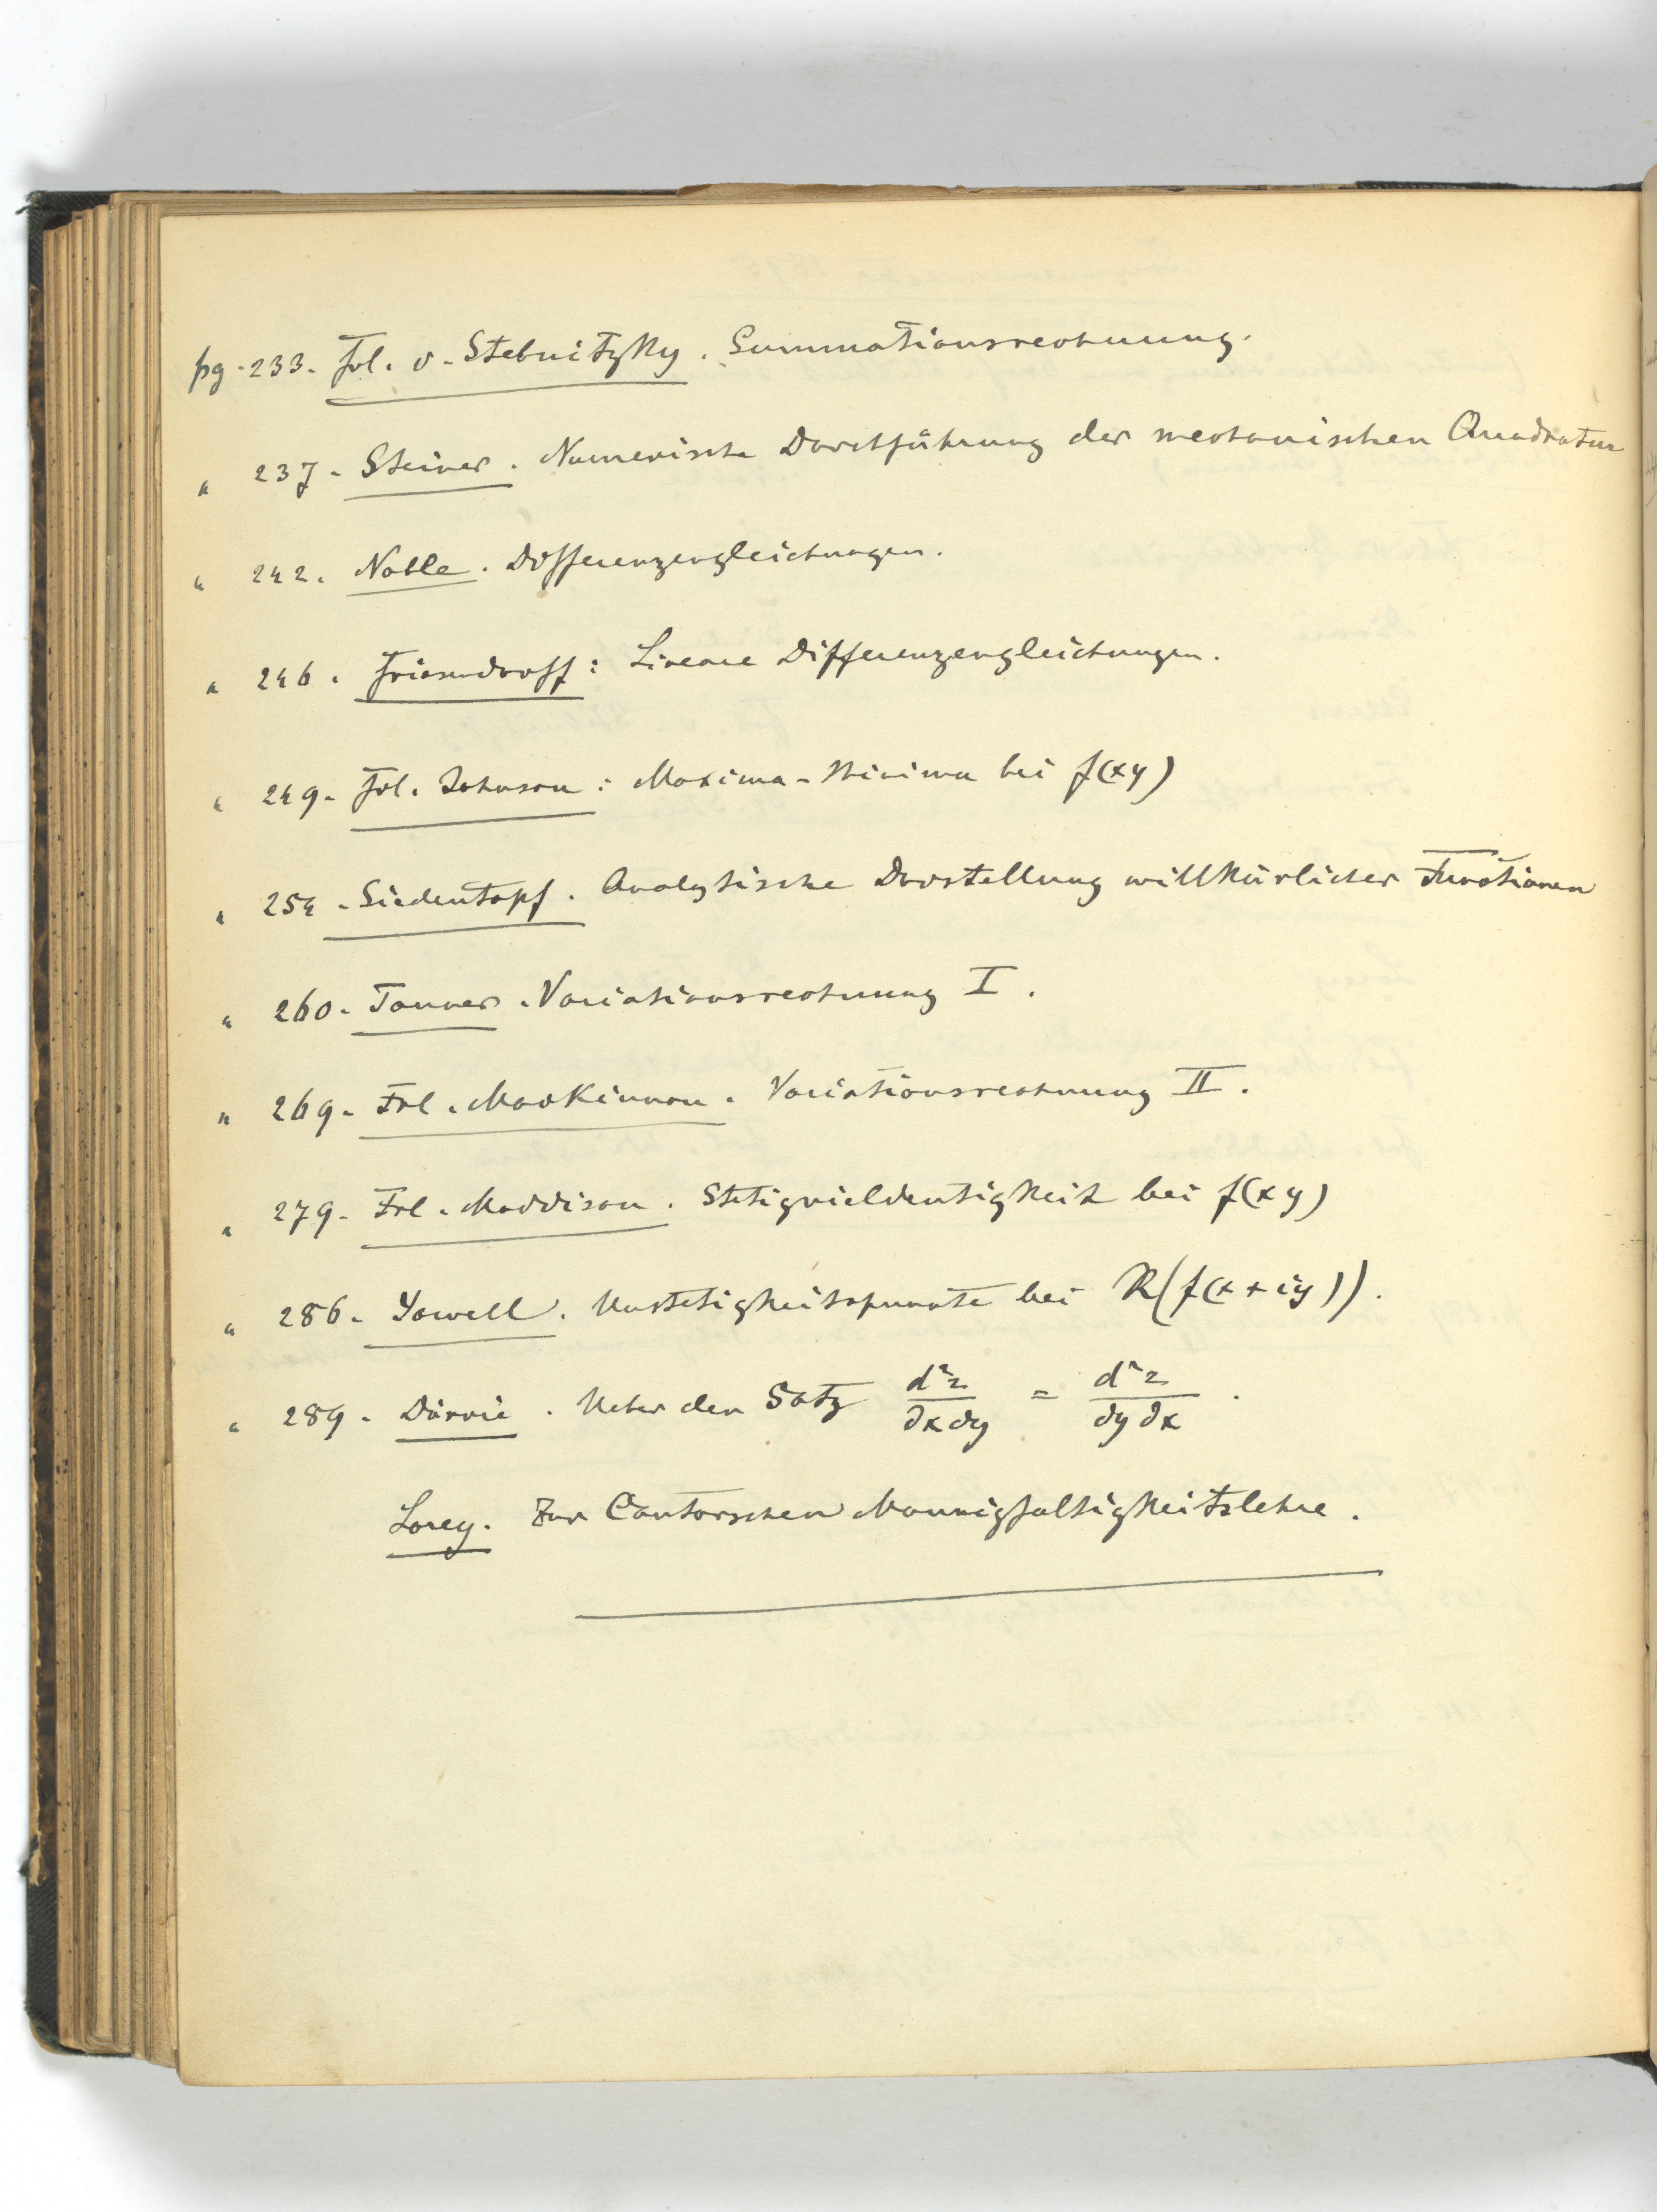 pg. 233. Frl. v. Stebnitzky. Summationsrechnung.
" 237. Steiner. Numerische Durchführung der mechanischen Quadratur
" 242. Noble. Differenzengleichungen.
" 246. Friesendorff: Lineare Differenzengleichungen.
" 249. Frl. Johnson: Maxima-Minima bei f(xy)
" 254. Siedentopf. Analytische Darstellung willkürlicher Functionen
" 260. Tanner. Variationsrechnung I.
" 269. Frl. MacKinnon. Variationsrechnung II.
" 279. Frl. Maddison. Stetigvieldeutigkeit bei f(xy)
" 286. Yowell. Unstetigkeitspuncte bei R(f(x+iy)).
" 289. Dörrie. Ueber den Satz d²z/∂x∂y = d²z/∂y∂x.
Lorey. Zur Cantorschen Mannigfaltigkeitslehre.